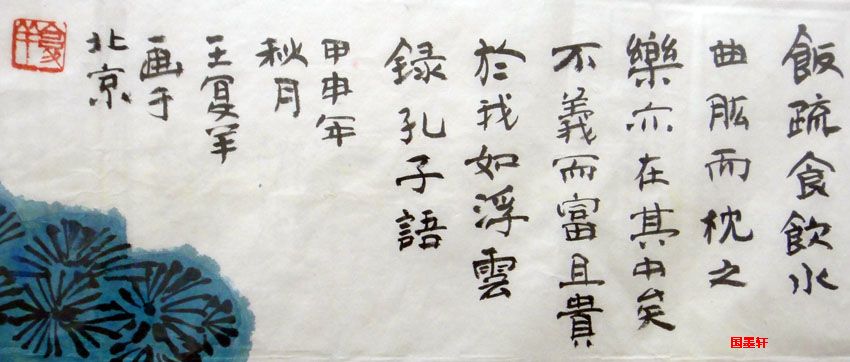 飯疏食飲水
曲肱而枕之
樂亦在其中矣
不義而富且貴
於我如浮雲
録孔子語
甲申年
秋月
王夏羊
画于
北京
夏羊
国墨轩